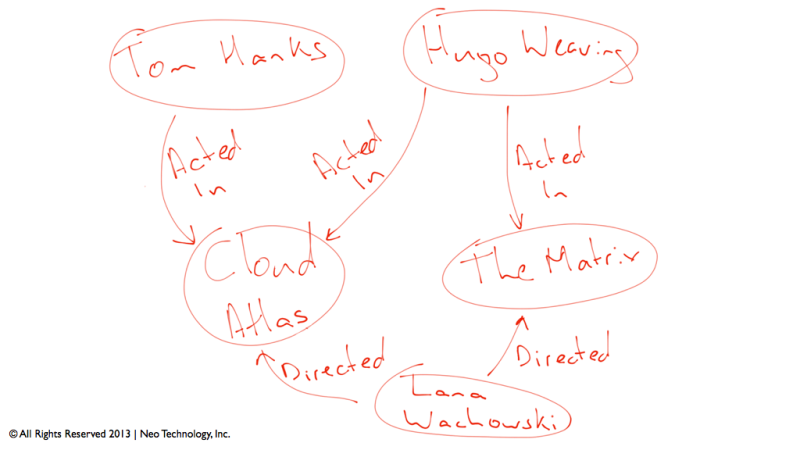 Tom Hanks
Hugo Weaving
Acted
In
Acted
In
Acted
In
Cloud
Atlas
The Matrix
Directed
Directed
Lana
Wachowski
© All Rights Reserved 2013 | Neo Technology, Inc.